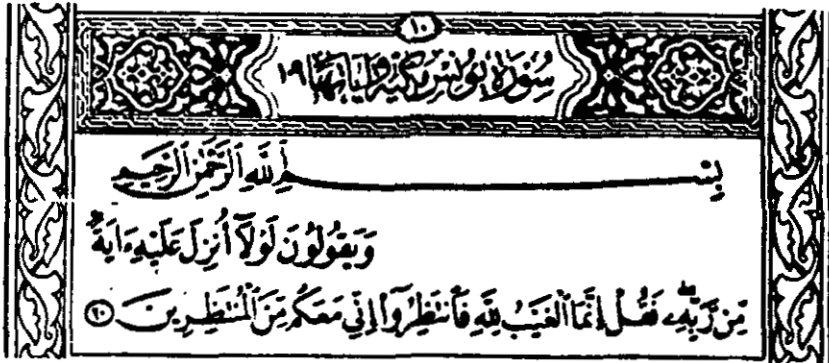 ١٠
سُورَةُ يُونُسَ مَكِّيَّة وَآيَاتُهَا ١٩
بِسْمِ ٱللَّهِ ٱلرَّحْمَٰنِ ٱلرَّحِيمِ
وَيَقُولُونَ لَوْلَآ أُنزِلَ عَلَيْهِ ءَايَةٌ
مِّن رَّبِّهِۦ ۖ فَقُلْ إِنَّمَا ٱلْغَيْبُ لِلَّهِ فَٱنتَظِرُوٓا۟ إِنِّى مَعَكُم مِّنَ ٱلْمُنتَظِرِينَ ٢٠